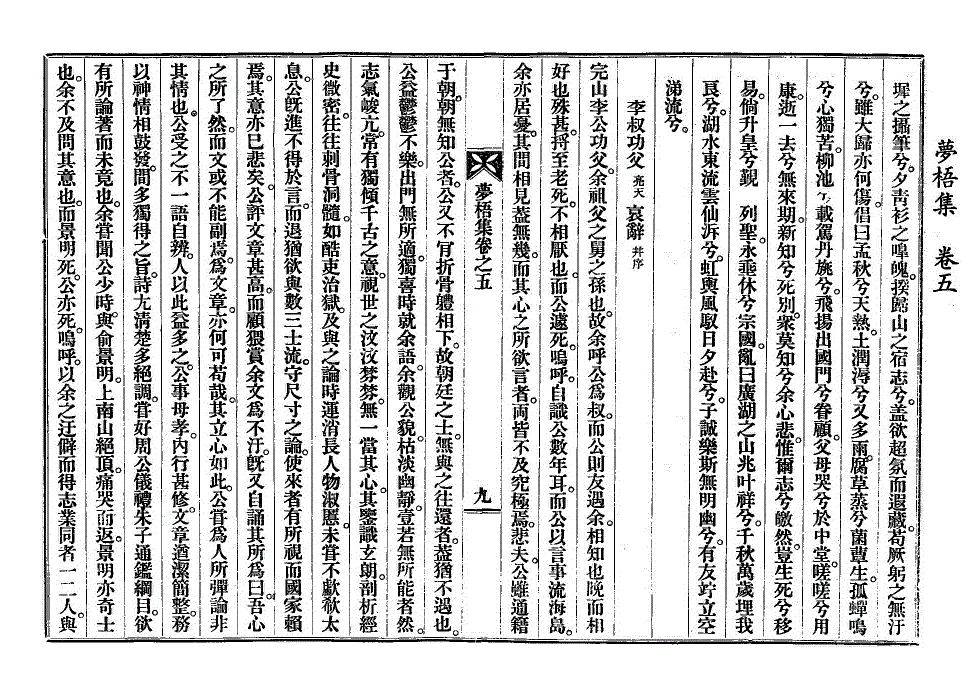 夢梧集　卷五
墀之攝筆兮。夕靑衫之嘷魄。揆歸山之宿志兮。盖欲超氛而遐藏。苟厥躬之無汙
兮。雖大歸亦何傷。倡曰孟秋兮天熱。土潤溽兮又多雨。腐草蒸兮菌蕈生。孤蟬鳴
兮心獨苦。柳池兮載駕。丹旐兮。飛揚出國門兮眷顧。父母哭兮於中堂。嗟嗟兮用
康。逝一去兮無來期。新知兮死別。衆莫知兮余心悲。惟爾志兮皦然。豈生死兮移
易。倘升皇兮覲　列聖。永垂休兮宗國。亂曰廣湖之山兆叶祥兮。千秋萬歲埋我
良兮。湖水東流雲仙泝兮。虹輿風馭日夕赴兮。子誠樂斯無明幽兮。有友竚立空
涕流兮。
李叔功父亮天哀辭幷序
完山李公功父。余祖父之舅之孫也。故余呼公爲叔。而公則友遇余。相知也晩而相
好也殊甚。捋至老死。不相厭也。而公遽死。嗚呼。自識公數年耳。而公以言事流海島。
余亦居憂。其間相見葢無幾。而其心之所欲言者。兩皆不及究極焉。悲夫。公雖通籍
夢梧集卷之五
九
于朝。朝無知公者。公又不肎折骨軆相下。故朝廷之士。無與之往還者。葢猶不遇也。
公益鬱鬱不樂。出門無所適。獨喜時就余語。余觀公貌。枯淡幽靜。壹若無所能者。然
志氣峻亢。常有獨傾千古之意。視世之汶汶棼棼。無一當其心。其鑒識玄朗。剖析經
史微密。往往刺骨洞髓。如酷吏治獄。及與之論時運消長人物淑慝。未甞不歔欷太
息。公旣進不得於言。而退猶欲與數三士流。守尺寸之論。使來者有所視。而國家賴
焉。其意亦已悲矣。公評文章甚高。而顧猥賞余文爲不汙。旣又自誦其所爲曰。吾心
之所了。然而文或不能副焉。爲文章。亦何可苟哉。其立心如此。公甞爲人所彈論。非
其情也。公受之不一語自辨。人以此益多之。公事母孝。內行甚修。文章遒潔簡整。務
以神情相鼓發。間多獨得之旨。詩尤淸楚多絕調。甞好周公儀禮朱子通鑑綱目。欲
有所論著而未竟也。余甞聞公少時。與俞景明。上南山絕頂。痛哭而返。景明亦奇士
也。余不及問其意也。而景明死。公亦死。嗚呼。以余之迂僻而得志業同者一二人。與